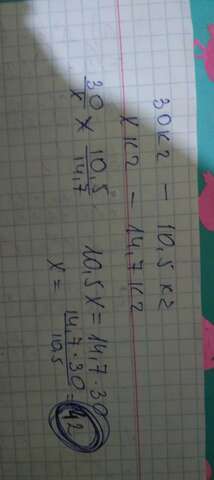 30кг – 10,5 кг
х кг – 14,7кг
30/х × 10,5/14,7 10,5х = 14,7·30
х = 14,7·30/10,5 = 42